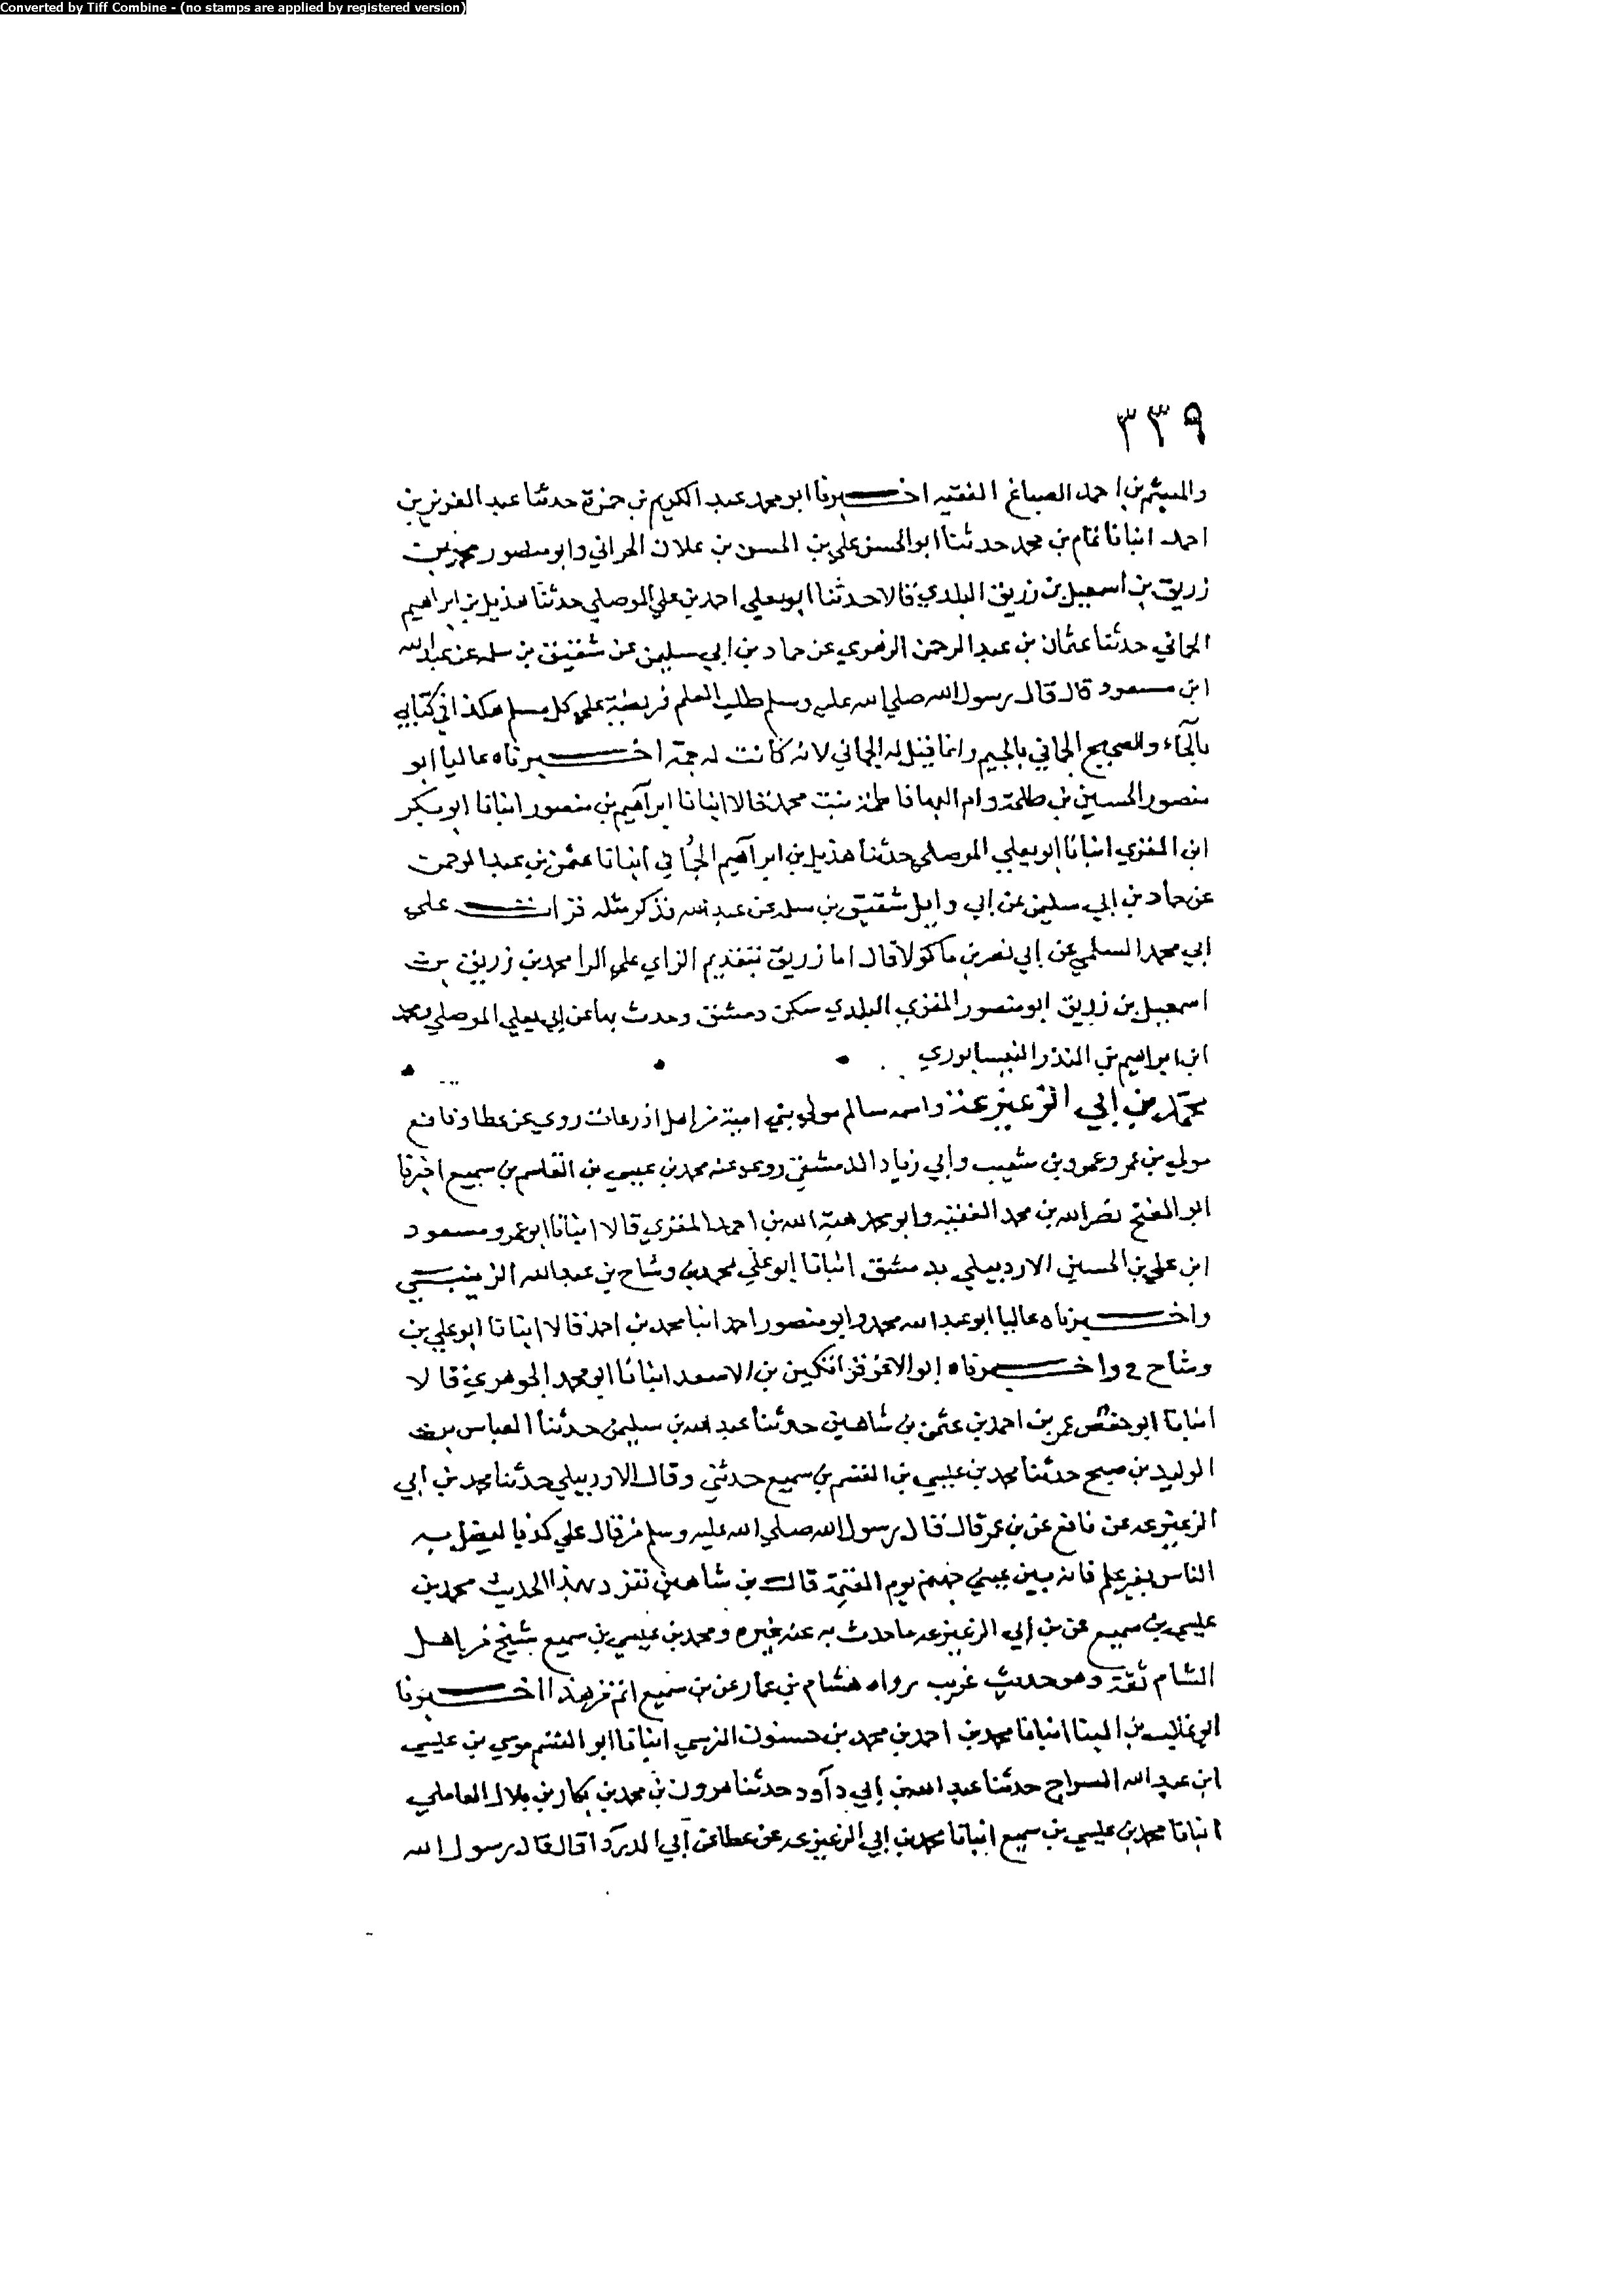 Converted by Tiff Combine - (no stamps are applied by registered version)
٣٣٩
والميثم بن احمد الصباغ الفقيه اخبرنا ابو محمد عبد الكريم بن حمزة حدثنا عبد العزيز بن
احمد انبانا تمام بن محمد حدثنا ابو الحسن علي بن الحسن بن علان الحراني وابو منصور محمد بن
زريق بن اسمعيل بن زريق البلدي قالا حدثنا ابو يعلي احمد بن علي الموصلي حدثنا هذيل بن ابراهيم
الحماني حدثنا عثمان بن عبد الرحمن الزهري عن حماد بن ابي سليمن عن شقيق بن سلمه عن عبد الله
ابن مسعود قال قال رسول الله صلي الله عليه وسلم طلب العلم فريضة علي كل مسلم هكذا في كتابي
بالحآء والصحيح الجماني بالجيم وانما قيل له الجماني لانه كانت له جمة اخبرناه عاليا ابو
منصور الحسين بن طلحة وام البها فاطمة بنت محمد قالا انبانا ابرآهيم بن منصور انبانا ابو بكر
ابن المقري انبانا ابو يعلي الموصلي حدثنا هذيل بن ابرآهيم الجماني انبانا عثمن بن عبد الرحمن
عن حماد بن ابي سليمن عن ابي وايل شقيق بن سلمه عن عبد الله فذكر مثله قرات علي
ابي محمد السلمي عن ابي نصر بن ماكولا قال اما زريق بتقديم الزاي علي الرا محمد بن زريق بن
اسمعيل بن زريق ابو منصور المقري البلدي سكن دمشق وحدث بها عن ابي يعلي الموصلي ومحمد
ابن ابراهيم بن المنذر النيسابوري
محمد بن ابي الزعيزعة واسمه سالم مولي بني امية من اهل اذرعات روي عن عطا ونافع
مولي بن عمر وعمرو بن شعيب وابي زياد الدمشقي روي عنه محمد بن عيسي بن القاسم بن سميع اخبرنا
ابو الفتح نصر الله بن محمد الفقيه وابو محمد هبة الله بن احمد المقري قالا انبانا ابو عمرو مسعود
ابن علي بن الحسين الاردبيلي بدمشق انبانا ابو علي محمد بن وشاح بن عبد الله الزينبي
واخبرناه عاليا ابو عبد الله محمد وابو منصور احمد انبا محمد بن احمد قالا انبانا ابو علي بن
وشاح ح واخبرناه ابو الاعز قراتكين بن الاسعد انبانا ابو محمد الجوهري قالا
انبانا ابو حفص عمر بن احمد بن عثمن بن شاهين حدثنا عبد الله بن سليمن حدثنا العباس بن
الوليد بن صبح حدثنا محمد بن عيسي بن القسم بن سميع حدثني وقال الاردبيلي حدثنا محمد بن ابي
الزعيزعه عن نافع عن بن عمر قال قال رسول الله صلي الله عليه وسلم من قال علي كذبا ليضل به
الناس بغير علم فانه بين عيني جهنم يوم القيمة قال بن شاهين تفرد بهذا الحديث محمد بن
عيسي بن سميع عن بن ابي الزعيزعه ما حدث به عنه غيره ومحمد بن عيسي بن سميع شيخ من اهل
الشام ثقة وهو حديث غريب رواه هشام بن عمار عن بن سميع اتم من هذا اخبرنا
ابو غالب بن البنا انبانا محمد بن احمد بن محمد بن حسنون النرسي انبانا ابو القسم موسي بن عيسي
ابن عبد الله السراج حدثنا عبد الله بن ابي دآود حدثنا هرون بن محمد بن بكار بن بلال العاملي
انبانا محمد بن عيسي بن سميع انبانا محمد بن ابي الزعيزعه عن عطا عن ابي الدردا قال قال رسول الله